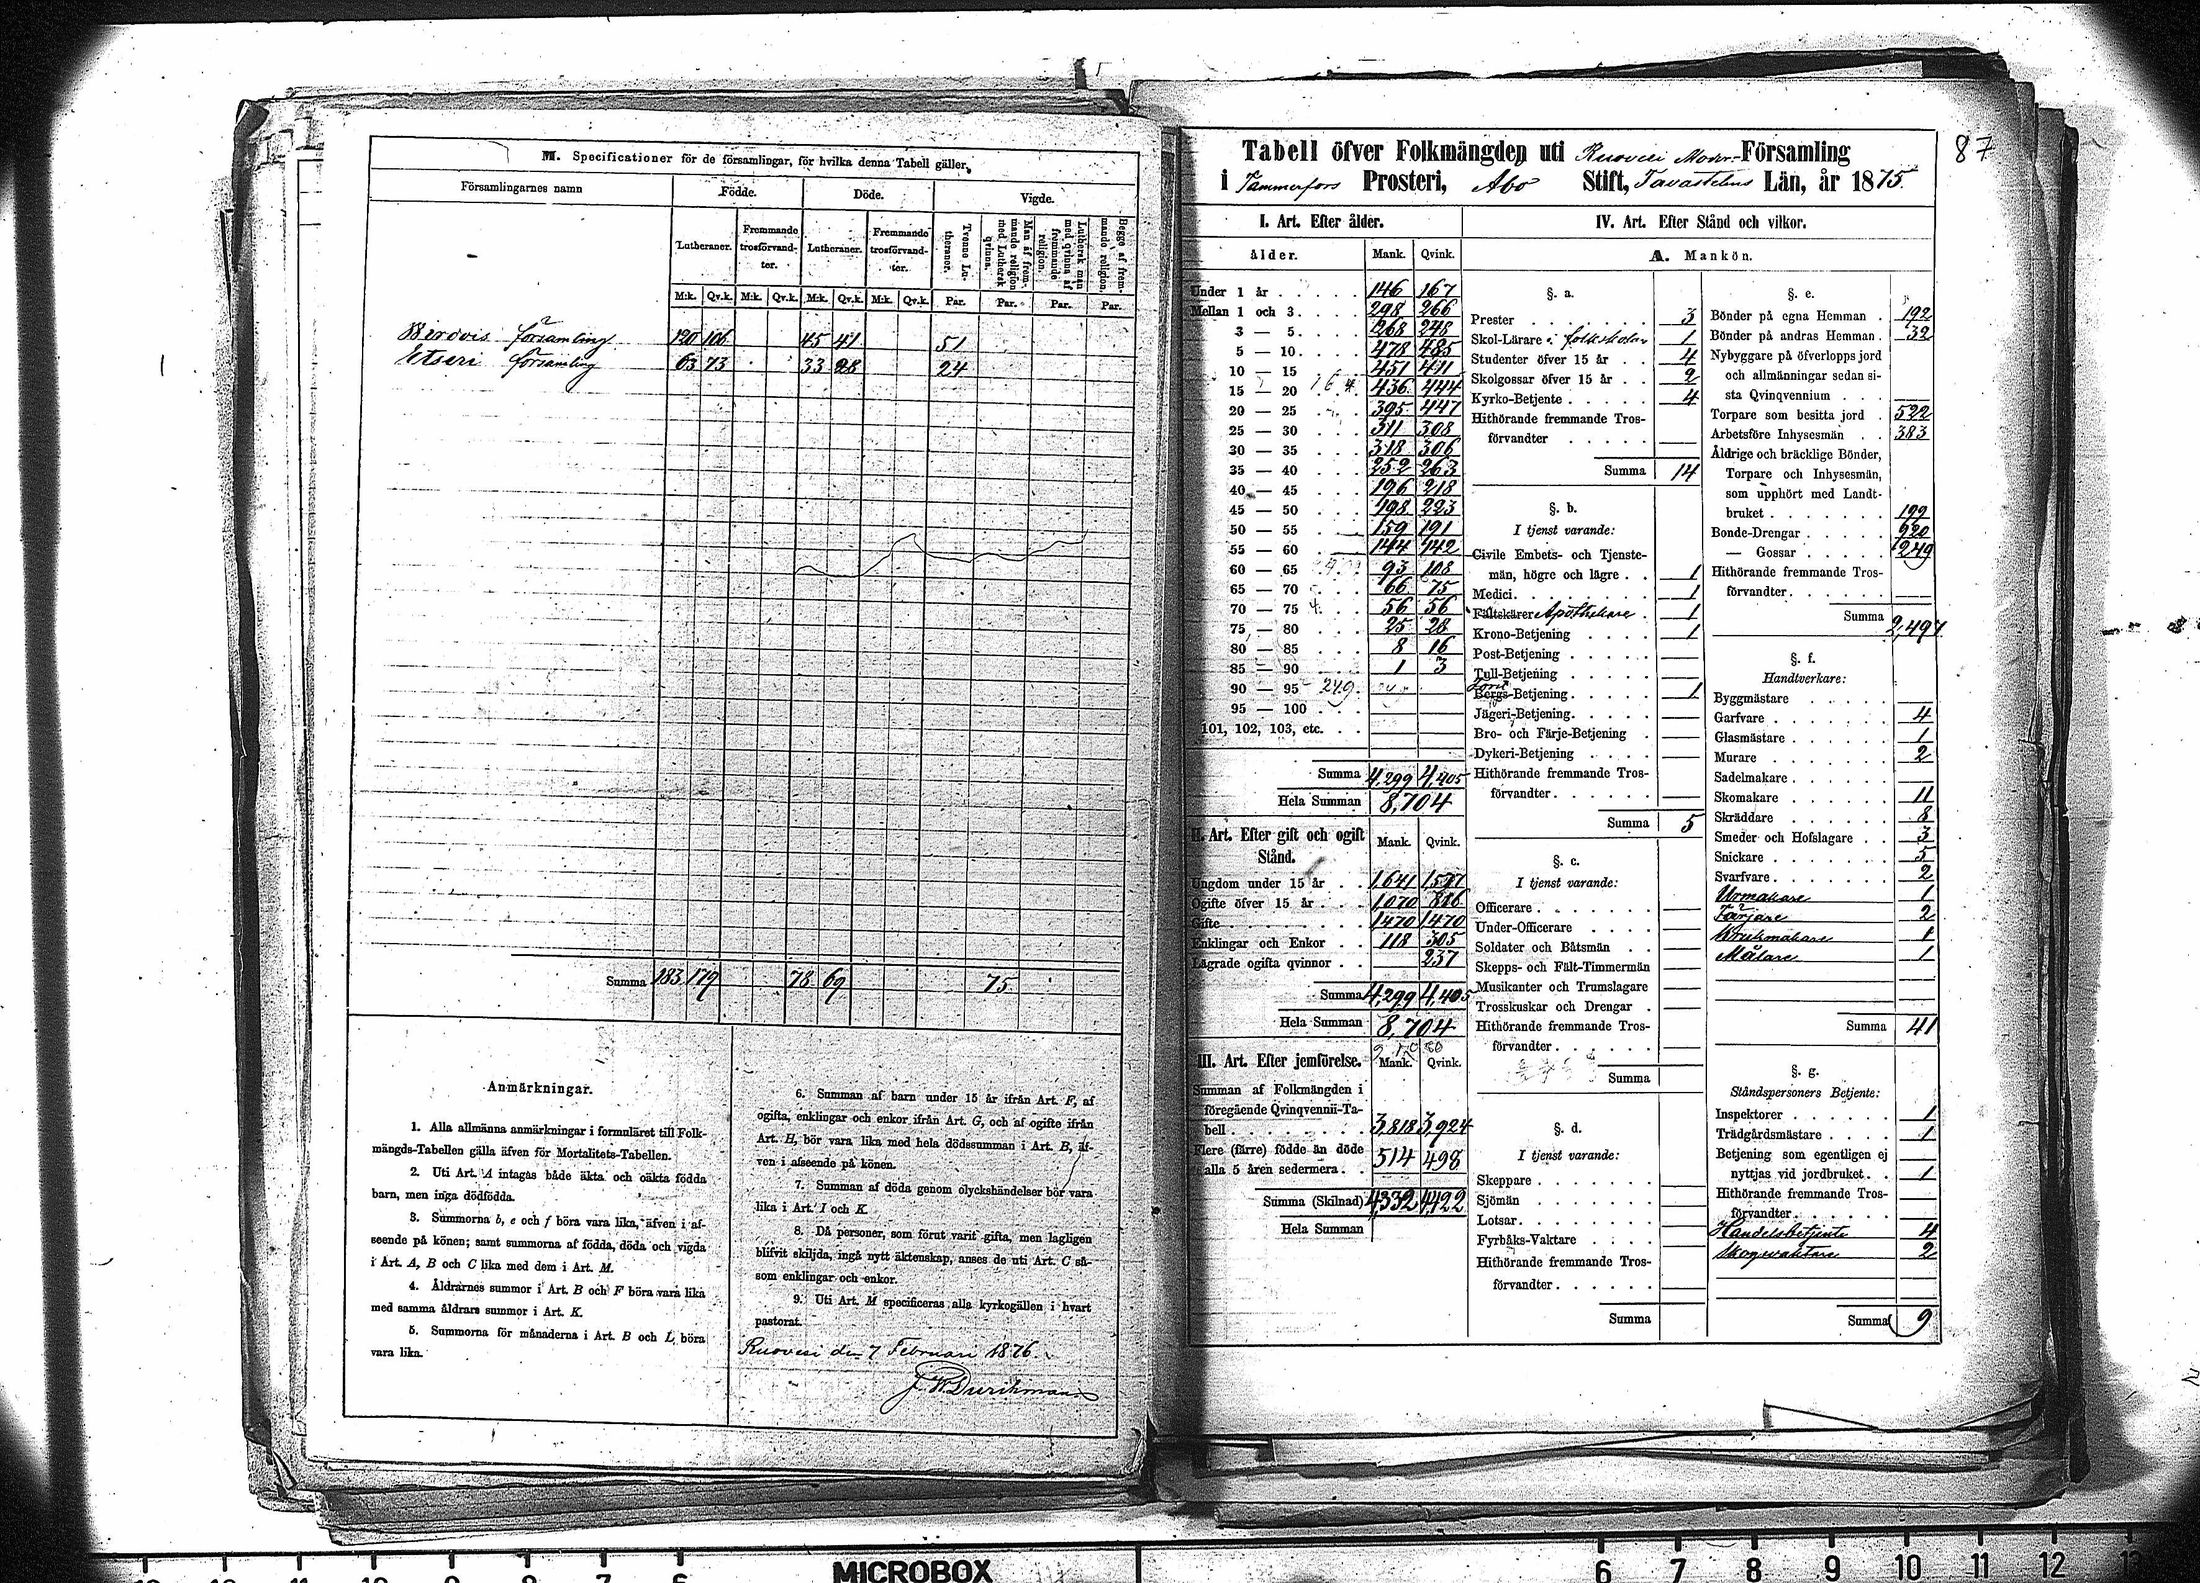 M. Specificationer för de församlingar, för hvilka denna Tabell gäller.
Församlingarnes namn
Födde.
Döde.
Vigde.
Lutheraner.
Fremmande trosförvandter.
Lutheraner.
Fremmande trosförvandter.
Tvenne Lutheraner.
Man af fremmande religion med Luthersk qvinna.
Luthersk man med qvinna af fremmande religion.
Begge af fremmande religion.
M:k. Qv.k. M:k. Qv.k. M:k. Qv.k. M:k. Qv.k. Par. Par. Par. Par.
församling 120 106 45 41 51
Etseri församling 63 73 33 28 24
Summa 183 179 78 69 75
Anmärkningar.
1. Alla allmänna anmärkningar i formuläret till Folk-
mängds-Tabellen gälla äfven för Mortalitets-Tabellen.
2. Uti Art. A intagas både äkta och oäkta födda
barn, men inga dödfödda.
3. Summorna b, e och f böra vara lika, äfven i af-
seende på könen; samt summorna af födda, döda och vigda
i Art. A, B och C lika med dem i Art. M.
4. Åldrarnes summor i Art. B och F böra vara lika
med samma åldrars summor i Art. K.
5. Summorna för månaderna i Art. B och L böra
vara lika.
6. Summan af barn under 15 år ifrån Art. F, af
ogifta, enklingar och enkor ifrån Art. G, och af ogifte ifrån
Art. H, bör vara lika med hela dödssumman i Art. B, äf-
ven i afseende på könen.
7. Summan af döda genom olyckshändelser bör vara
lika i Art. I och K.
8. Då personer, som förut varit gifta, men lagligen
blifvit skiljda, ingå nytt äktenskap, anses de uti Art. C så-
som enklingar och enkor.
9. Uti Art. M specificeras alla kyrkogällen i hvart
pastorat.
Ruovesi den 7 Februari 1876.
87
Tabell öfver Folkmängden uti Ruovesi Moder-Församling
i Tammerfors Prosteri, Åbo Stift, Tavastehus Län, år 1875.
I. Art. Efter ålder.
Ålder. Mank. Qvink.
Under 1 år 146 167
Mellan 1 och 3 298 266
3 — 5 268 248
5 — 10 478 485
10 — 15 451 411
15 — 20 436 444
20 — 25 395 447
25 — 30 311 308
30 — 35 318 306
35 — 40 252 263
40 — 45 196 218
45 — 50 198 223
50 — 55 159 191
55 — 60 144 142
60 — 65 93 108
65 — 70 66 75
70 — 75 56 56
75 — 80 25 28
80 — 85 8 16
85 — 90 1 3
90 — 95 249
95 — 100
101, 102, 103, etc.
Summa 4,299 4,405
Hela Summan 8,704
II. Art. Efter gift och ogift Stånd. Mank. Qvink.
Ungdom under 15 år 1641 1577
Ogifte öfver 15 år 1070 816
Gifte 1470 1470
Enklingar och Enkor 118 305
Lägrade ogifta qvinnor 237
Summa 4,299 4,405
Hela Summan 8,704
III. Art. Efter jemförelse. Mank. Qvink.
Summan af Folkmängden i
föregående Qvinqvennii-Ta-
bell 3,818 3,924
Flere (färre) födde än döde
alla 5 åren sedermera 514 498
Summa (Skilnad) 4,332 4,422
Hela Summan
IV. Art. Efter Stånd och vilkor.
A. Mankön.
§. a.
Prester 3
Skol-Lärare i folkskolan 1
Studenter öfver 15 år 4
Skolgossar öfver 15 år 2
Kyrko-Betjente 4
Hithörande fremmande Tros-
förvandter
Summa 14
§. b.
I tjenst varande:
Civile Embets- och Tjenste-
män, högre och lägre 1
Medici 1
Fältskärer Apothekare 1
Krono-Betjening 1
Post-Betjening
Tull-Betjening
Bergs-Betjening 1
Jägeri-Betjening
Bro- och Färje-Betjening
Dykeri-Betjening
Hithörande fremmande Tros-
förvandter
Summa 5
§. c.
I tjenst varande:
Officerare
Under-Officerare
Soldater och Båtsmän
Skepps- och Fält-Timmermän
Musikanter och Trumslagare
Trosskuskar och Drengar
Hithörande fremmande Tros-
förvandter
Summa
§. d.
I tjenst varande:
Skeppare
Sjömän
Lotsar
Fyrbåks-Vaktare
Hithörande fremmande Tros-
förvandter
Summa
§. e.
Bönder på egna Hemman 192
Bönder på andras Hemman 32
Nybyggare på öfverloppsjord
och allmänningar sedan si-
sta Qvinqvennium
Torpare som besitta jord 522
Arbetsföre Inhysesmän 383
Åldrige och bräcklige Bönder,
Torpare och Inhysesmän,
som upphört med Landt-
bruket 199
Bonde-Drengar 920
— Gossar 249
Hithörande fremmande Tros-
förvandter
Summa 2,497
§. f.
Handtverkare:
Byggmästare
Garfvare 4
Glasmästare 1
Murare 2
Sadelmakare
Skomakare 11
Skräddare 8
Smeder och Hofslagare 3
Snickare 5
Svarfvare 2
Urmakare 1
Färjare 2
Krukmakare 1
Målare 1
Summa 41
§. g.
Ståndspersoners Betjente:
Inspektorer 1
Trädgårdsmästare 1
Betjening som egentligen ej
nyttjas vid jordbruket 1
Hithörande fremmande Tros-
förvandter
Handelsbetjente 4
Skogvaktare 2
Summa 9
MICROBOX
11 10 9 8 7 6
6 7 8 9 10 11 12 13